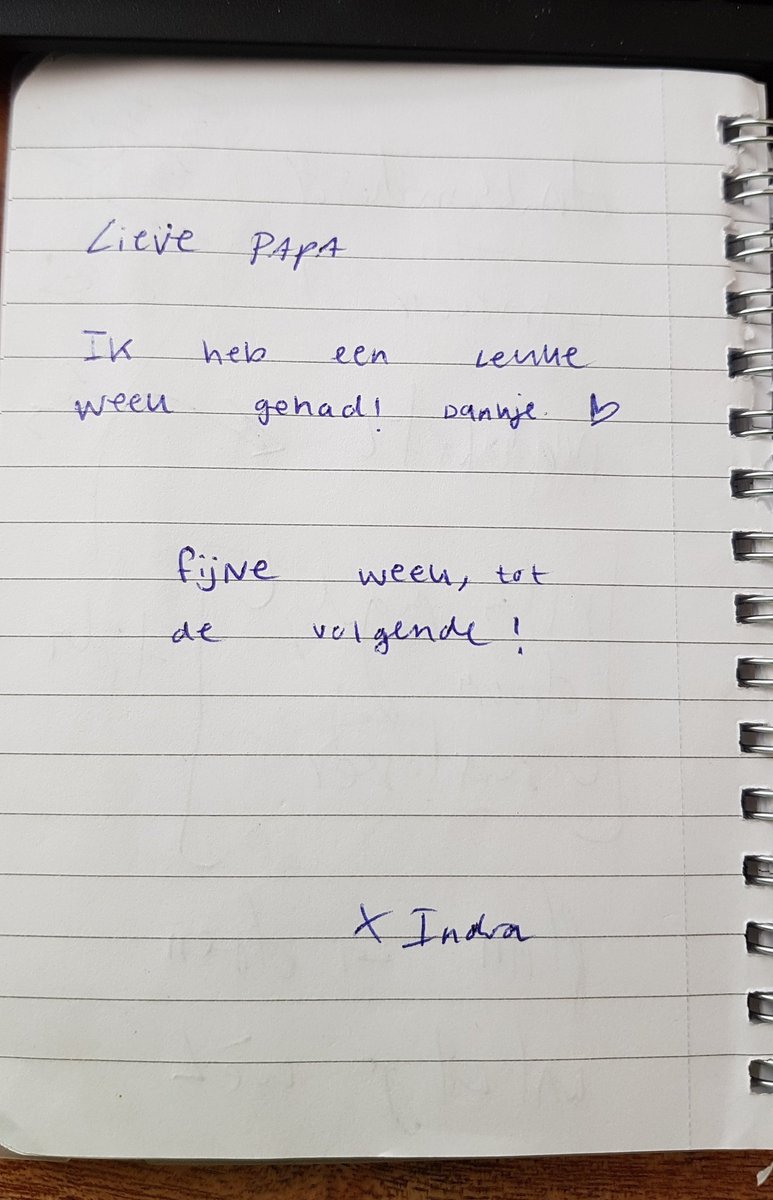 Lieve PAPA
Ik heb een leuke
week gehad! Dankje. ♡
fijne week, tot
de volgende!
X Indra